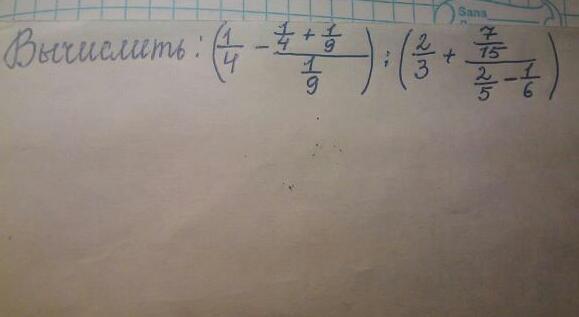 Sana
Вычислить: (1/4 - (1/4 + 1/9)/(1/9)) : (2/3 + (7/15)/(2/5 - 1/6))